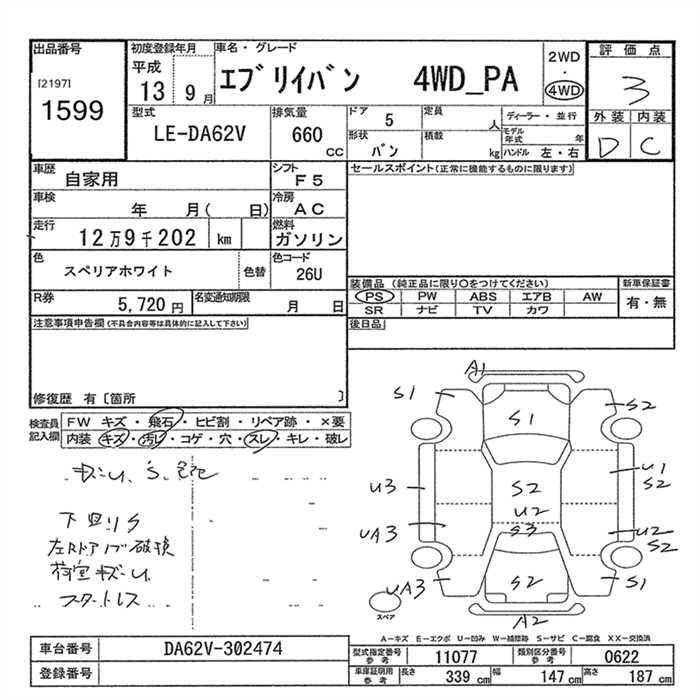 出品番号
[2197]
1599
初度登録年月
平成
13 9月
車名・グレード
エブリイバン 4WD_PA
2WD
・
4WD
評価点
3
外装 内装
D C
型式
LE-DA62V
排気量
660
cc
ドア
5
定員
人
形状
バン
積載
kg
ディーラー・並行
モデル年式 年
ハンドル 左・右
車歴
自家用
シフト
F5
セールスポイント(正常に機能するものに限ります)
車検
年 月( 日)
冷房
AC
走行
12万9千202 km
燃料
ガソリン
色
スペリアホワイト
色替
色コード
26U
装備品 (純正品に限り○をつけてください)
新車保証書
PS PW ABS エアB AW
有・無
SR ナビ TV カワ
R券
5,720円
名変通知期限
月 日
後日品
注意事項申告欄(不具合内容等は具体的に記入して下さい)
修復歴 有〔箇所 〕
検査員
記入欄
FW キズ・飛石・ヒビ割・リペア跡・×要
内装 キズ・汚レ・コゲ・穴・スレ・キレ・破レ
下回りS
左RドアノブE破損
荷室キズ~U
スタートレス
A1
S1
S2
S1
U3
S2
U2
S3
U1
S2
UA3
U2
S2
UA3
S2
S1
A2
スペア
A－キズ E－エクボ U－凹み W－補修跡 S－サビ C－腐食 XX－交換済
車台番号
DA62V-302474
登録番号
型式指定番号
参考
11077
類別区分番号
参考
0622
車庫証明用
参考
長さ 339 cm 幅 147 cm 高さ 187 cm